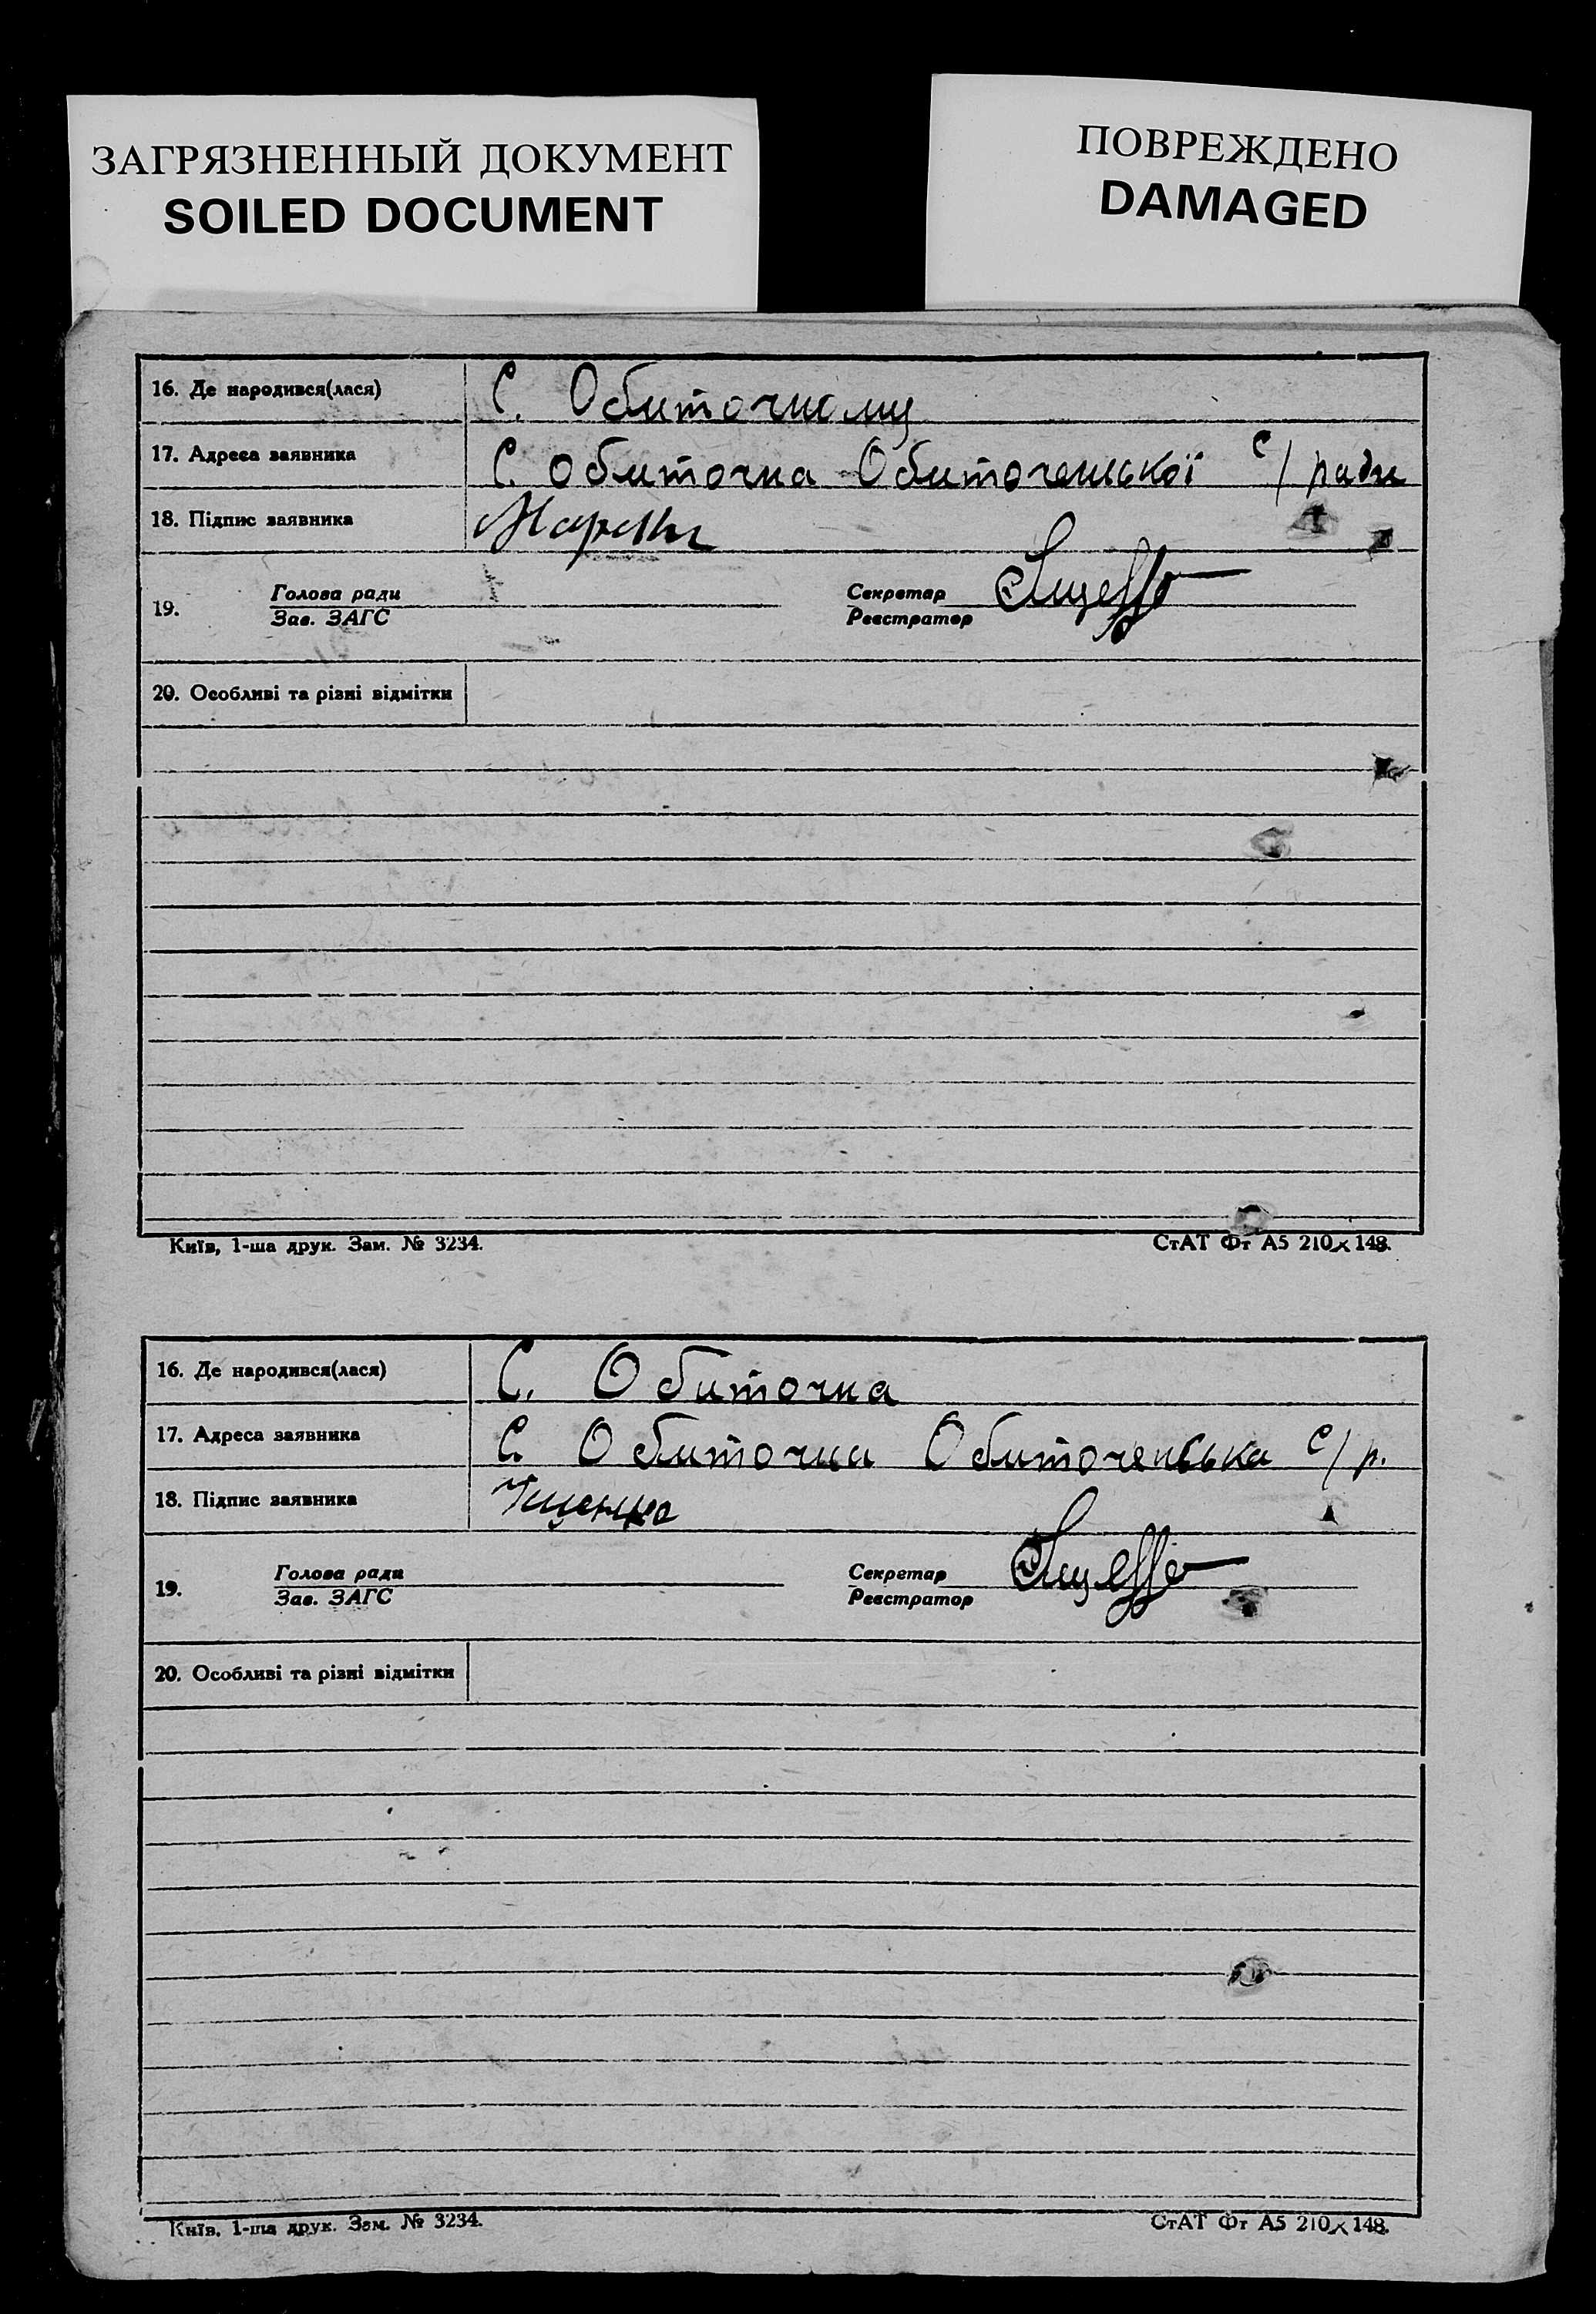 ЗАГРЯЗНЕННЫЙ ДОКУМЕНТ
SOILED DOCUMENT
ПОВРЕЖДЕНО
DAMAGED
16. Де народився(лася) С. Обиточному
17. Адреса заявника С. Обиточна Обиточенської с/ради
18. Підпис заявника
19. Голова ради Секретар
Зав. ЗАГС Реєстратор
20. Особливі та різні відмітки
Київ, 1-ша друк. Зам. № 3234. СтАТ Фт А5 210×148.
16. Де народився(лася) С. Обиточна
17. Адреса заявника С. Обиточна Обиточенська с/р.
18. Підпис заявника Іщенко
19. Голова ради Секретар
Зав. ЗАГС Реєстратор
20. Особливі та різні відмітки
Київ, 1-ша друк. Зам. № 3234. СтАТ Фт А5 210×148.